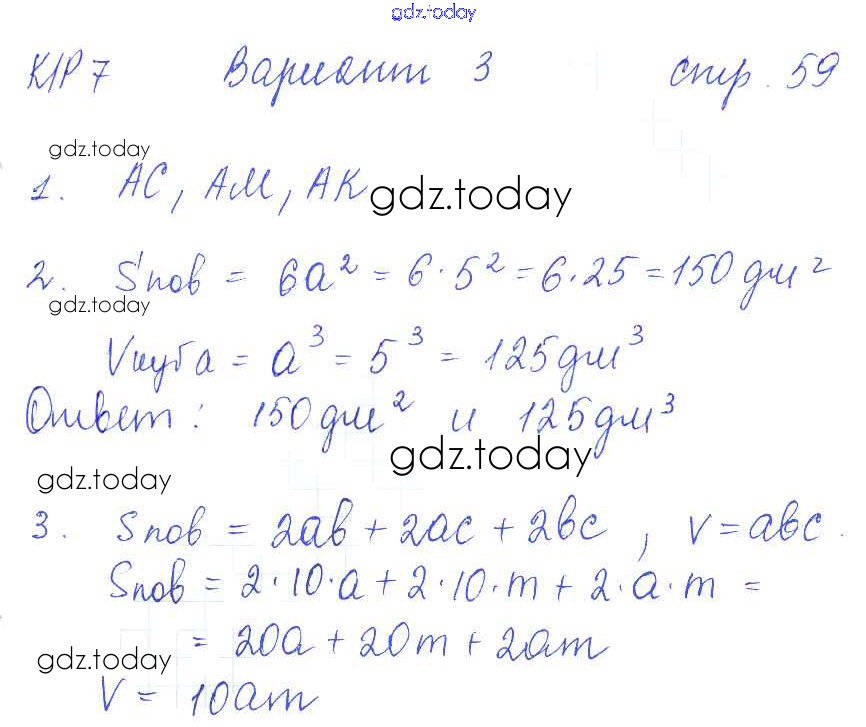 gdz.today
К/Р 7 Вариант 3 стр. 59
gdz.today
1. АС, АМ, АК gdz.today
2. Sпов = 6a² = 6·5² = 6·25 = 150 дм²
gdz.today
Vкуба = a³ = 5³ = 125 дм³
Ответ: 150 дм² и 125 дм³
gdz.today
gdz.today
3. Sпов = 2ab + 2ac + 2bc, V = abc.
Sпов = 2·10·a + 2·10·m + 2·a·m =
= 20a + 20m + 2am
gdz.today
V = 10am